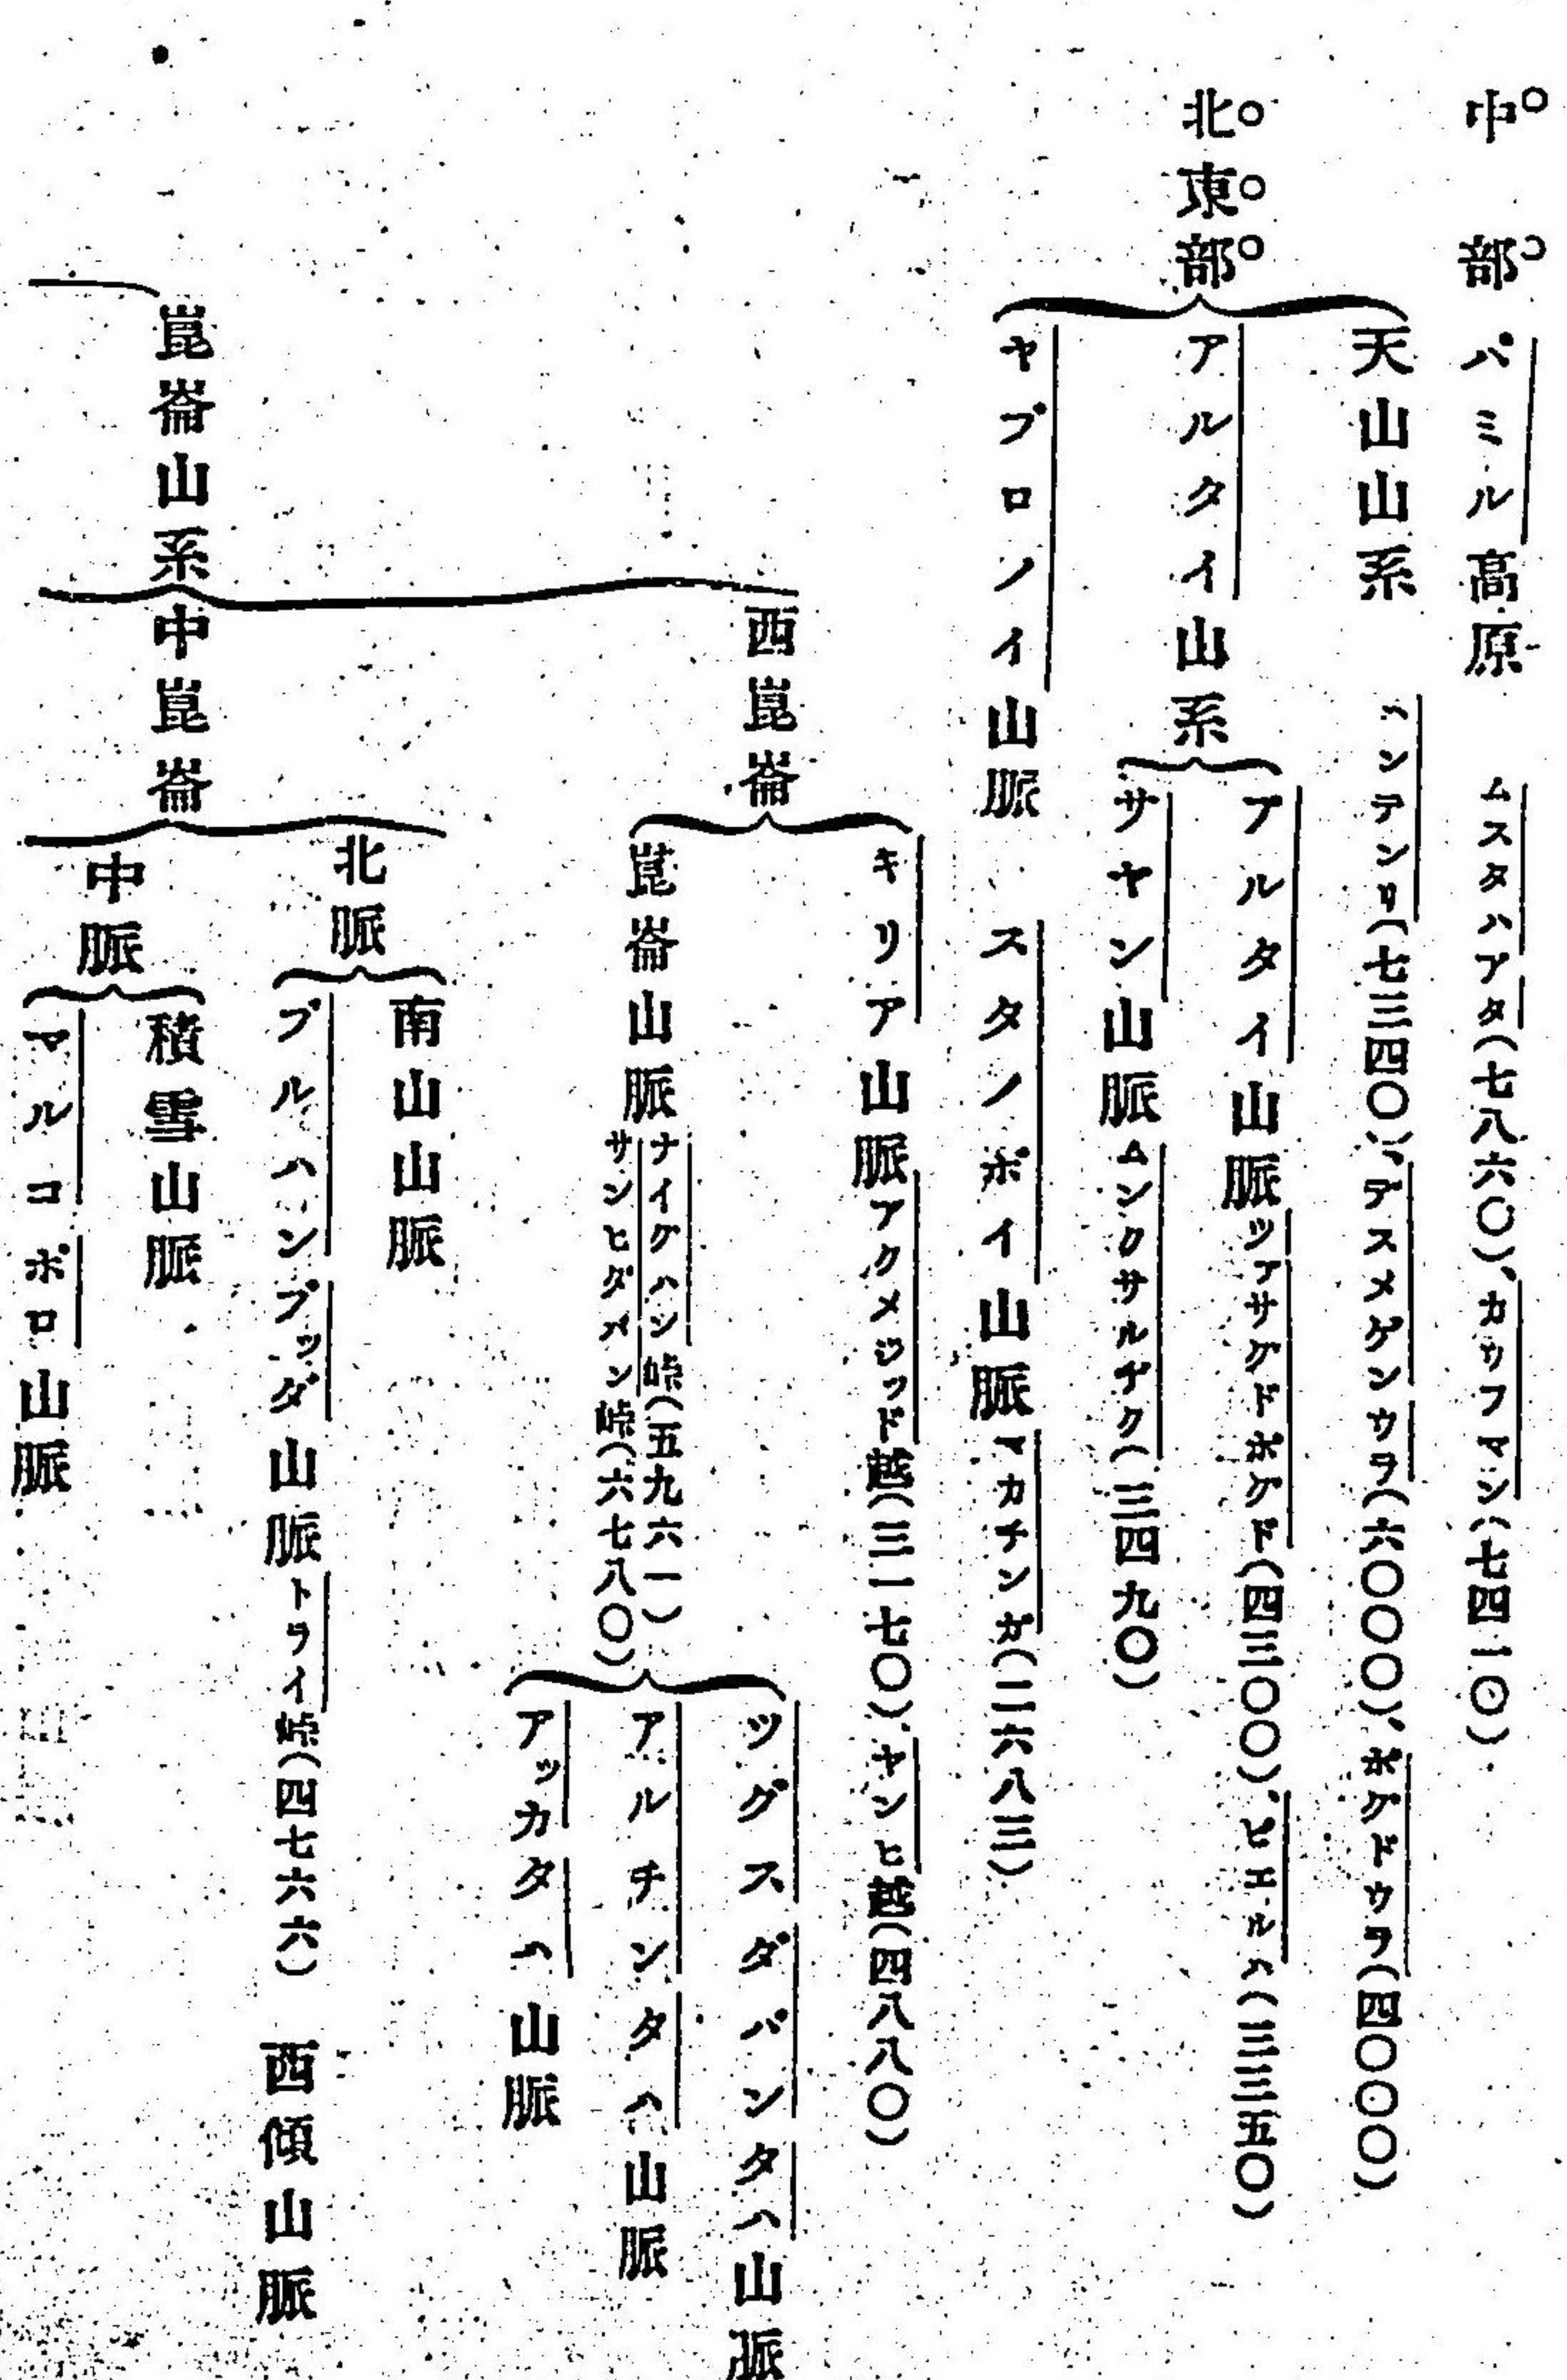 中部 パミル高原 ムスタハアタ(七八六〇)、カウフマン(七四一〇)
北東部
天山山系 ハンテンリ(七三四〇)、デスメゲンウラ(六〇〇〇)、ボグドウラ(四〇〇〇)
アルタイ山系
アルタイ山脈 ツアサグドボグド(四三〇〇)、ビエルハ(三三五〇)
サヤン山脈 ムンクサルヂク(三四九〇)
ヤブロノイ山脈 スタノボイ山脈 マカチンガ(二六八三)
西崑崙
キリア山脈 アクメジッド越(三一七〇)、ヤンヒ越(四八八〇)
崑崙山脈 ナイグハシ峠(五九六一)
サンヒダメン峠(六七八〇)
ツグスダバンタハ山脈
アルチンタハ山脈
アッカタハ山脈
崑崙山系
中崑崙
北脈
南山山脈
ブルハンブッダ山脈 トライ峠(四七六六) 西傾山脈
中脈
積雪山脈
マルコポロ山脈